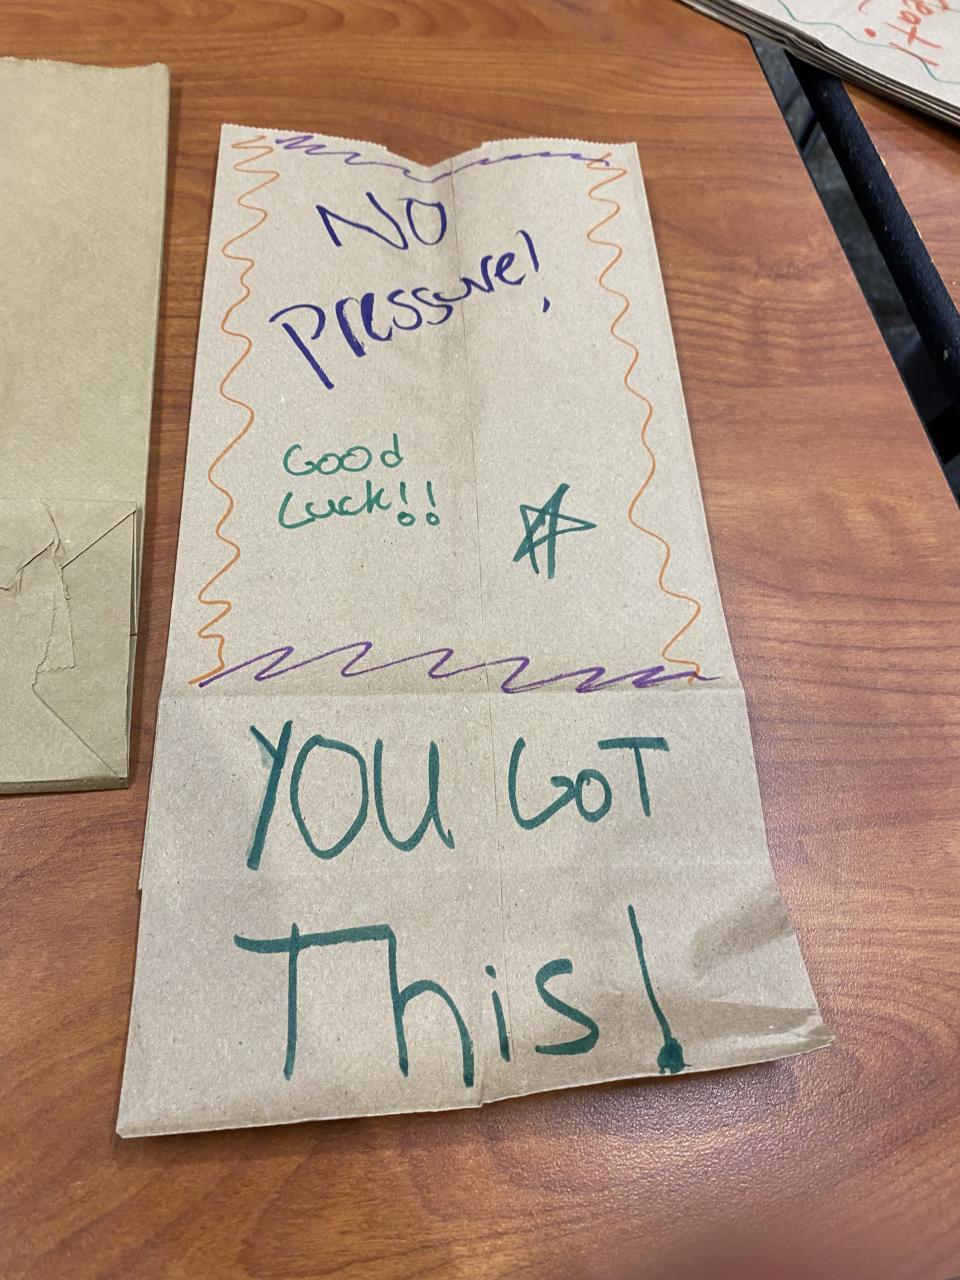 No
Pressure!
Good
Luck!!
YOU GOT
This!